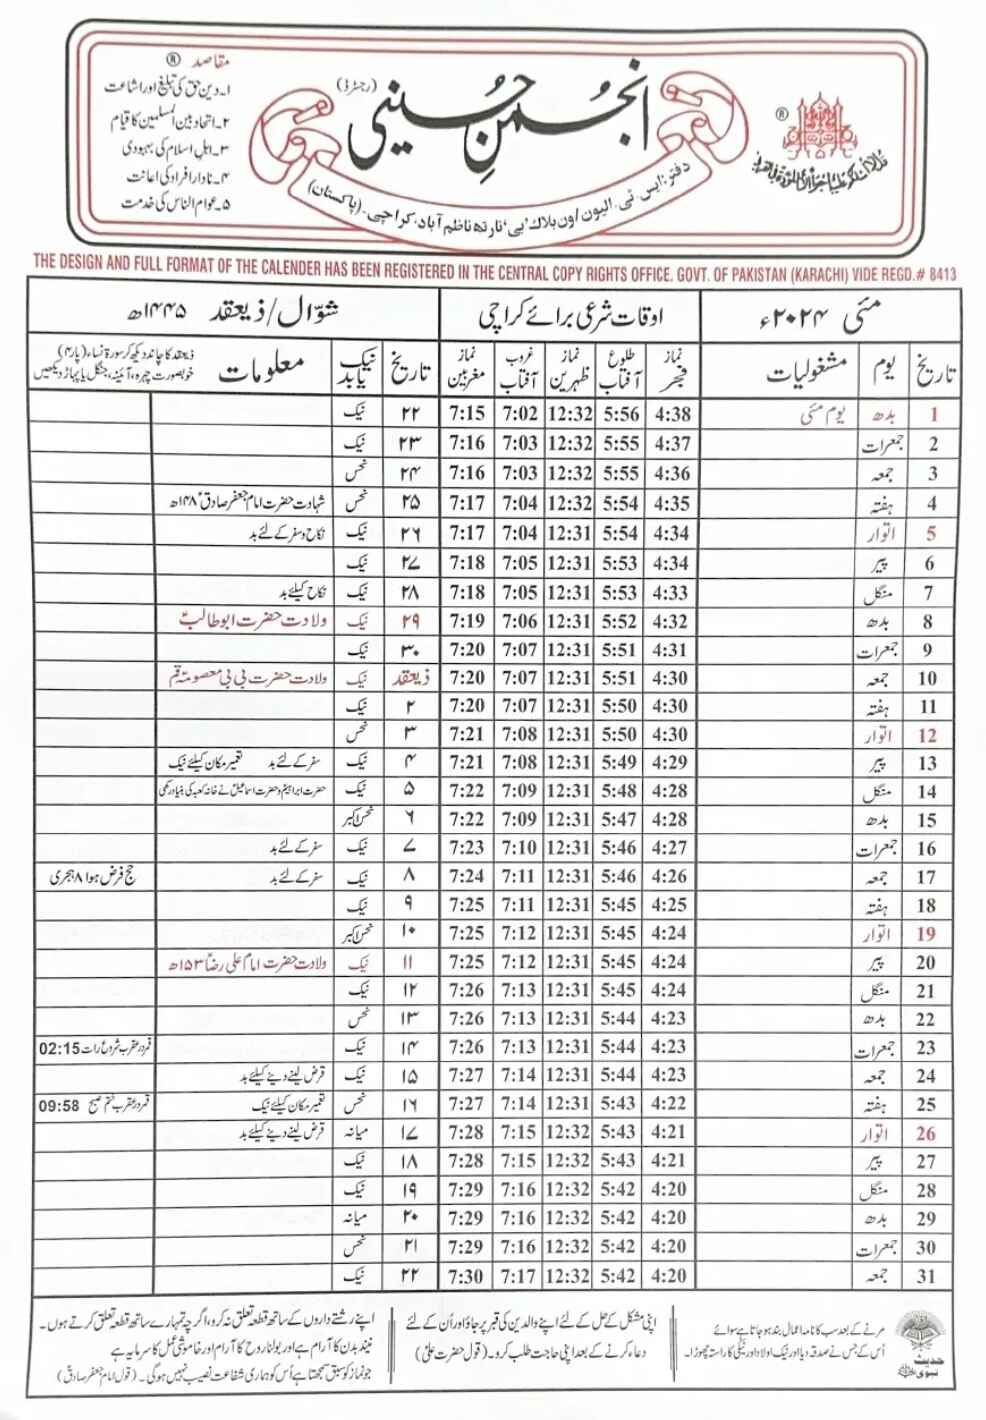 مقاصد ®
۱۔ دین حق کی تبلیغ اور اشاعت
۲۔ اتحاد بین المسلمین کا قیام
۳۔ اہل اسلام کی بہبودی
۴۔ نادار افراد کی اعانت
۵۔ عوام الناس کی خدمت
انجمنِ حسینی (رجسٹرڈ)
®
دفتر: ایس۔ ٹی۔ الیون اون بلاک 'بی' نارتھ ناظم آباد، کراچی۔ (پاکستان)
THE DESIGN AND FULL FORMAT OF THE CALENDER HAS BEEN REGISTERED IN THE CENTRAL COPY RIGHTS OFFICE. GOVT. OF PAKISTAN (KARACHI) VIDE REGD.# 8413
مئی ۲۰۲۴ء اوقات شرعی برائے کراچی شوّال / ذیعقد ۱۴۴۵ھ
تاریخ یوم مشغولیات نماز فجر طلوع آفتاب نماز ظہرین غروب آفتاب نماز مغربین تاریخ نیک یا بد معلومات ذیعقد کا چاند دیکھ کر سورۃ نساء (پارہ ۴) خوبصورت چہرہ، آئینہ، جنگل یا پہاڑ دیکھیں
1 بدھ یوم مئی 4:38 5:56 12:32 7:02 7:15 ۲۲ نیک
2 جمعرات 4:37 5:55 12:32 7:03 7:16 ۲۳ نیک
3 جمعہ 4:36 5:55 12:32 7:03 7:16 ۲۴ نحس
4 ہفتہ 4:35 5:54 12:32 7:04 7:17 ۲۵ نحس شہادت حضرت امام جعفر صادق ۱۴۸ھ
5 اتوار 4:34 5:54 12:31 7:04 7:17 ۲۶ نیک نکاح و سفر کے لئے بد
6 پیر 4:34 5:53 12:31 7:05 7:18 ۲۷ نیک
7 منگل 4:33 5:53 12:31 7:05 7:18 ۲۸ نیک نکاح کیلئے بد
8 بدھ 4:32 5:52 12:31 7:06 7:19 ۲۹ نیک ولادت حضرت ابوطالبؑ
9 جمعرات 4:31 5:51 12:31 7:07 7:20 ۳۰ نیک
10 جمعہ 4:30 5:51 12:31 7:07 7:20 ذیعقد نیک ولادت حضرت بی بی معصومہ قم
11 ہفتہ 4:30 5:50 12:31 7:07 7:20 ۲ نیک
12 اتوار 4:30 5:50 12:31 7:08 7:21 ۳ نحس
13 پیر 4:29 5:49 12:31 7:08 7:21 ۴ نیک سفر کے لئے بد تعمیر مکان کیلئے نیک
14 منگل 4:28 5:48 12:31 7:09 7:22 ۵ نیک حضرت ابراہیمؑ و حضرت اسماعیلؑ نے خانہ کعبہ کی بنیاد رکھی
15 بدھ 4:28 5:47 12:31 7:09 7:22 ۶ نحس اکبر
16 جمعرات 4:27 5:46 12:31 7:10 7:23 ۷ نیک سفر کے لئے بد
17 جمعہ 4:26 5:46 12:31 7:11 7:24 ۸ نیک سفر کے لئے بد حج فرض ہوا ۸ ہجری
18 ہفتہ 4:25 5:45 12:31 7:11 7:25 ۹ نیک
19 اتوار 4:24 5:45 12:31 7:12 7:25 ۱۰ نحس اکبر
20 پیر 4:24 5:45 12:31 7:12 7:25 ۱۱ نیک ولادت حضرت امام علی رضاؑ ۱۵۳ھ
21 منگل 4:24 5:45 12:31 7:13 7:26 ۱۲ نیک
22 بدھ 4:23 5:44 12:31 7:13 7:26 ۱۳ نحس
23 جمعرات 4:23 5:44 12:31 7:13 7:26 ۱۴ نیک قمر در عقرب شروع رات 02:15
24 جمعہ 4:23 5:44 12:31 7:14 7:27 ۱۵ نیک قرض لینے دینے کیلئے بد
25 ہفتہ 4:22 5:43 12:31 7:14 7:27 ۱۶ نحس تعمیر مکان کیلئے نیک قمر در عقرب ختم صبح 09:58
26 اتوار 4:21 5:43 12:32 7:15 7:28 ۱۷ میانہ قرض لینے دینے کیلئے بد
27 پیر 4:21 5:43 12:32 7:15 7:28 ۱۸ نیک
28 منگل 4:20 5:42 12:32 7:16 7:29 ۱۹ نیک
29 بدھ 4:20 5:42 12:32 7:16 7:29 ۲۰ میانہ
30 جمعرات 4:20 5:42 12:32 7:16 7:29 ۲۱ نحس
31 جمعہ 4:20 5:42 12:32 7:17 7:30 ۲۲ نیک
حدیث نبوی ﷺ
مرنے کے بعد سب کا نامہ اعمال بند ہو جاتا ہے سوائے
اُس کے جس نے صدقہ دیا اور نیک اولاد اور نیکی کا راستہ چھوڑا۔
اپنی مشکل کے حل کے لئے اپنے والدین کی قبر پر جاؤ اور اُن کے لئے
دعاء کرنے کے بعد اپنی حاجت طلب کرو۔ (قول حضرت علیؑ)
اپنے رشتے داروں کے ساتھ قطعہ تعلق نہ کرو، اگرچہ تمہارے ساتھ قطعہ تعلق کرتے ہوں۔
نیند بدن کا آرام ہے اور بولنا روح کا آرام اور خاموشی عمل کا سرمایہ ہے
جو نماز کو سبق سمجھتا ہے اُس کو ہماری شفاعت نصیب نہیں ہوگی۔ (قول امام جعفر صادقؑ)